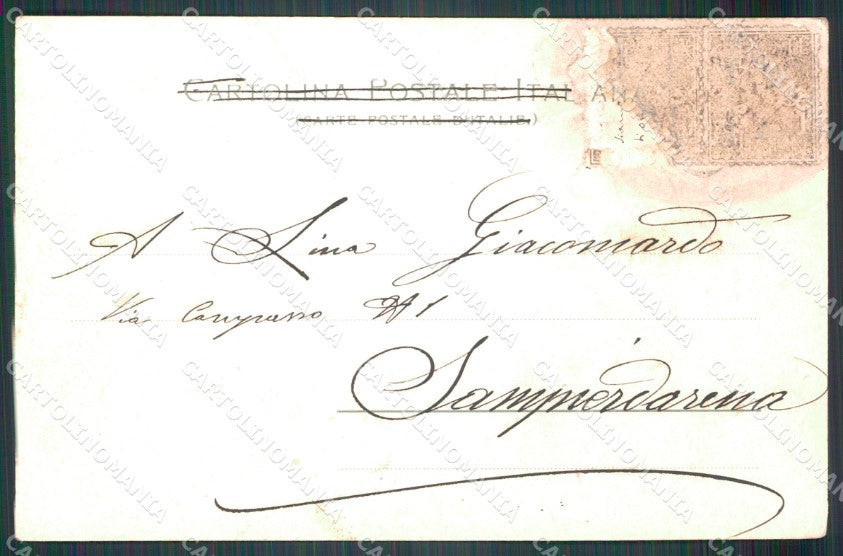 CARTOLINA POSTALE ITALIANA
(CARTE POSTALE D'ITALIE)
A Lina Giacomardo
Via Campasso N 1
Sampierdarena
CARTOLINOMANIA